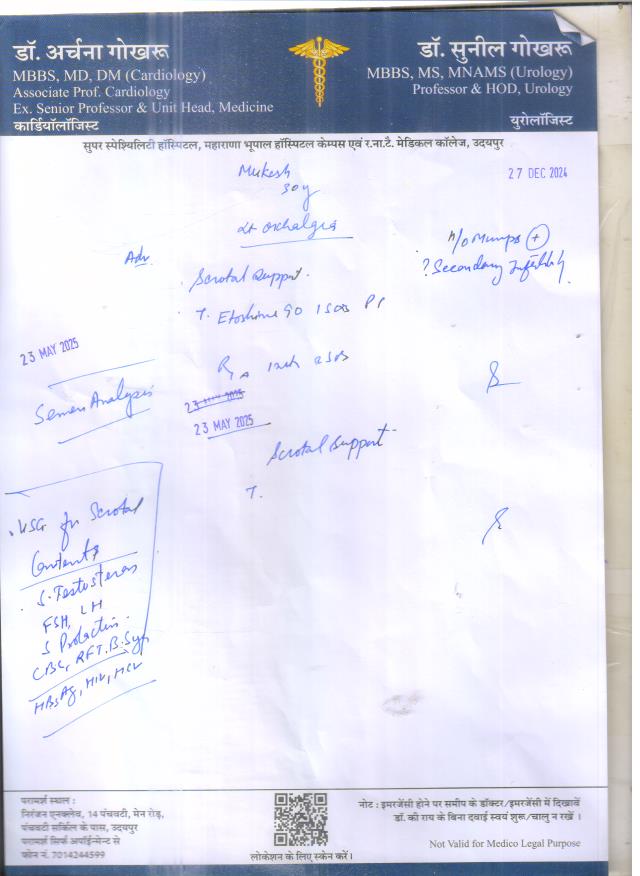 डॉ. अर्चना गोखरू
MBBS, MD, DM (Cardiology)
Associate Prof. Cardiology
Ex. Senior Professor & Unit Head, Medicine
कार्डियॉलॉजिस्ट
डॉ. सुनील गोखरू
MBBS, MS, MNAMS (Urology)
Professor & HOD, Urology
युरोलॉजिस्ट
सुपर स्पेश्यिलिटी हॉस्पिटल, महाराणा भूपाल हॉस्पिटल केम्पस एवं र.ना.टै. मेडिकल कॉलेज, उदयपुर
27 DEC 2024
Mukesh
30y
Lt Orchalgia
H/O Mumps +
? Secondary Infertility
Adv
Scrotal Support.
T. Etoshine 90 1 SOS
23 MAY 2025
Semen Analysis
23 MAY 2025
23 MAY 2025
Scrotal Support
T.
. USG for Scrotal
Contents
. S. Testosteron
FSH, LH
S Prolactin.
CBC, RFT, B. Sug
HBsAg, HIV, HCV
परामर्श स्थान :
निरंजन एनक्लेव, 14 पंचवटी, मेन रोड़,
पंचवटी सर्किल के पास, उदयपुर
परामर्श सिर्फ अपॉईन्मेन्ट से
फोन नं. 7014244599
लोकेशन के लिए स्केन करें।
नोट : इमरजेंसी होने पर समीप के डॉक्टर/इमरजेंसी में दिखावें
डॉ. की राय के बिना दवाई स्वयं शुरू/चालु न रखें ।
Not Valid for Medico Legal Purpose